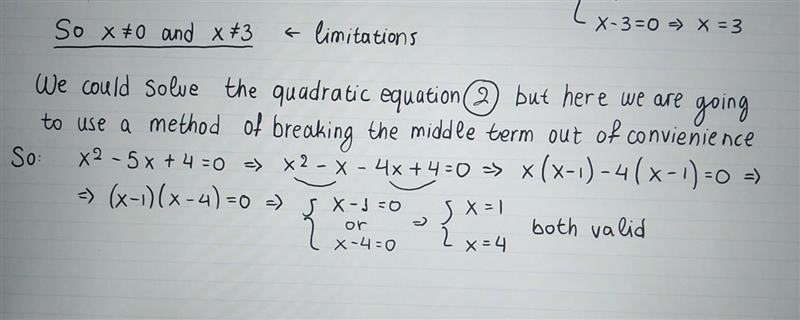 x-3=0 ⇒ x = 3
So x≠0 and x≠3 ← limitations
We could solve the quadratic equation ② but here we are going
to use a method of breaking the middle term out of convienience
So: x² - 5x + 4 = 0 ⇒ x² - x - 4x + 4 = 0 ⇒ x(x-1) - 4(x-1) = 0 ⇒
⇒ (x-1)(x-4) = 0 ⇒ { x-1=0 or x-4=0 ⇒ { x=1 x=4 both valid